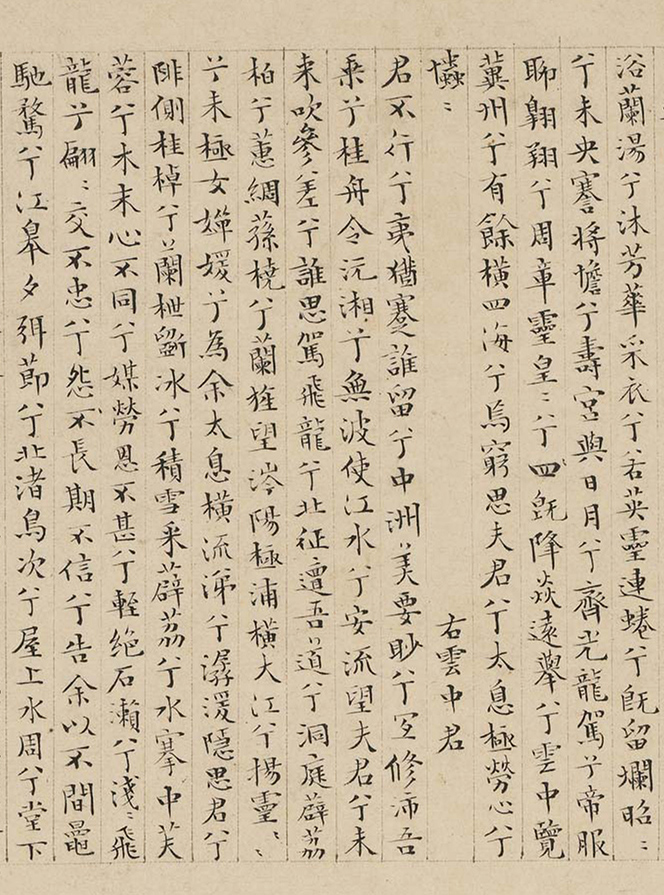 浴蘭湯兮沐芳華采衣兮若英靈連蜷兮旣留爛昭〻
兮未央蹇將憺兮壽宮與日月兮齊光龍駕兮帝服
聊翱翔兮周章靈皇〻兮四旣降猋遠舉兮雲中覽
冀州兮有餘橫四海兮焉窮思夫君兮太息極勞心兮
𢥞〻
右雲中君
君不行兮夷猶蹇誰留兮中洲美要眇兮宜修沛吾
乘兮桂舟令沅湘兮無波使江水兮安流望夫君兮未
來吹參差兮誰思駕飛龍兮北征邅吾道兮洞庭薜荔
柏兮蕙綢蓀橈兮蘭旌望涔陽極浦橫大江兮揚靈〻
兮未極女嬋媛兮為余太息橫流涕兮潺湲隱思君兮
陫側桂棹兮蘭枻斲冰兮積雪采薜荔兮水搴中芙
蓉兮木末心不同兮媒勞恩不甚兮輕絕石瀨兮淺〻飛
龍兮翩〻交不忠兮怨不長期不信兮告余以不閒鼂
馳騖兮江皋夕弭節兮北渚鳥次兮屋上水周兮堂下